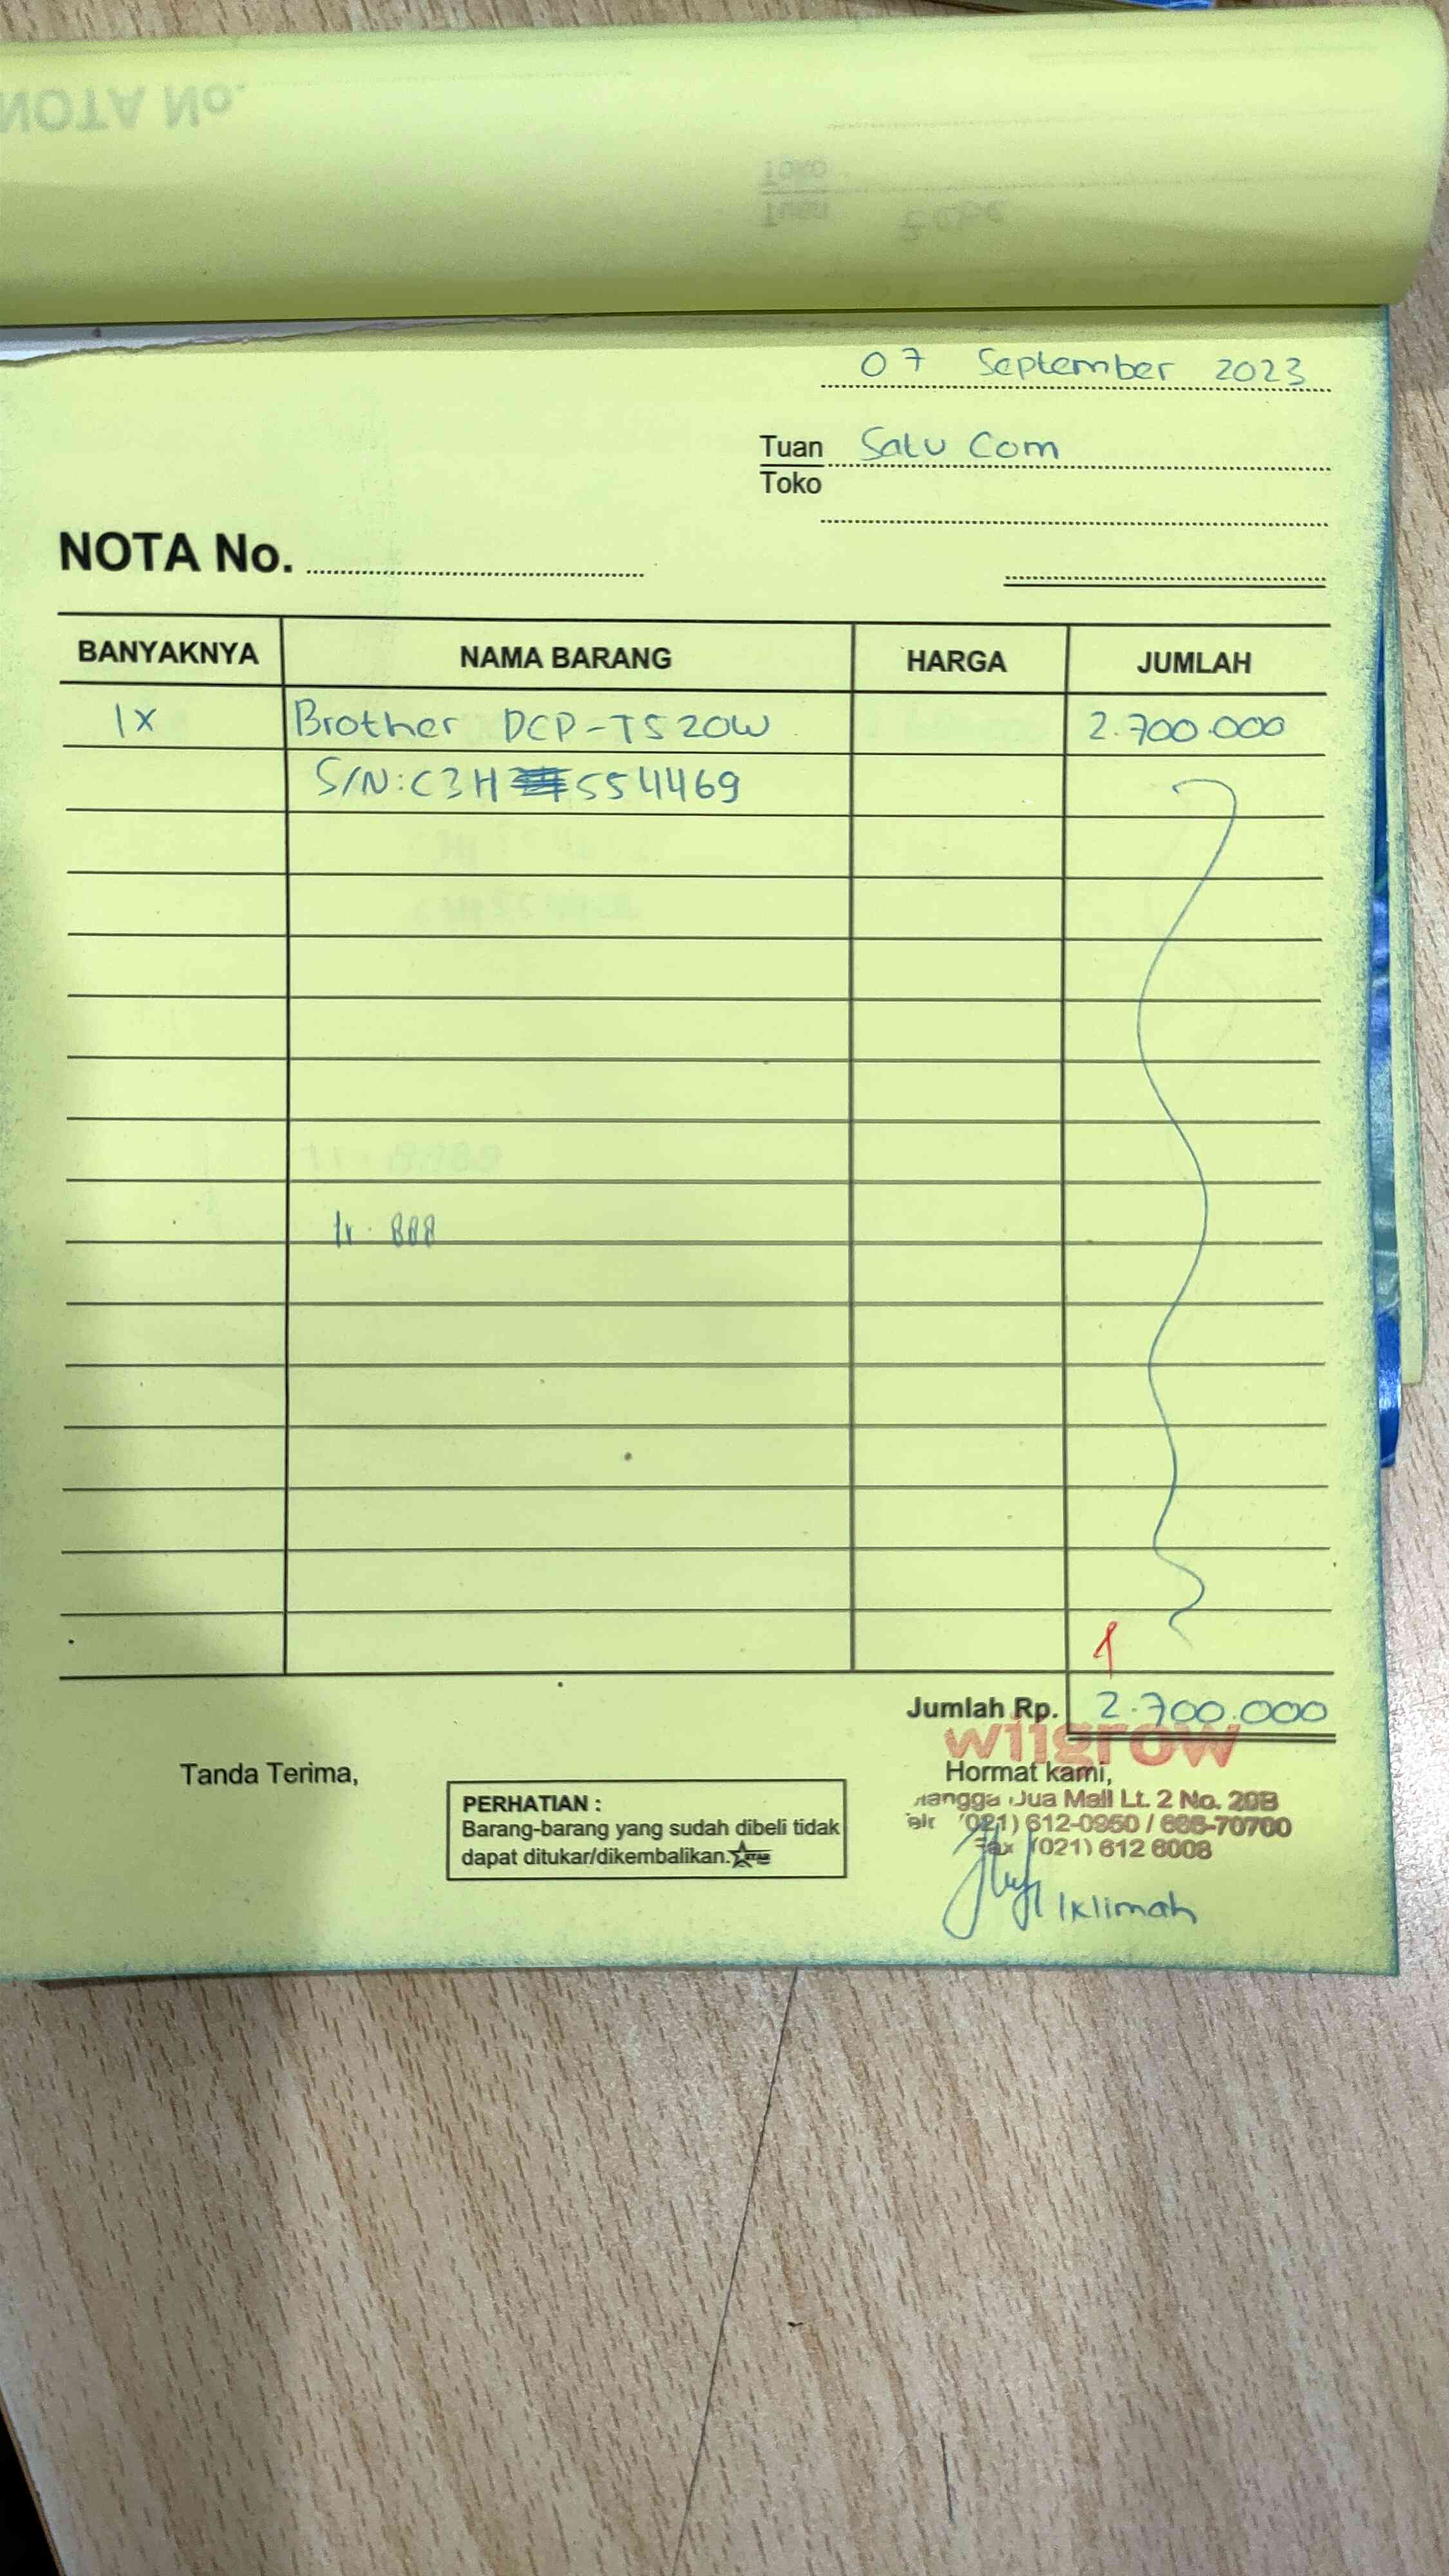 NOTA No.
Toko
Tuan
07 September 2023
Tuan Satu Com
Toko
NOTA No.
BANYAKNYA NAMA BARANG HARGA JUMLAH
1x Brother DCP-T520W 2.700.000
S/N: C3H 554469
Jumlah Rp. 2.700.000
wiigrow
Tanda Terima,
Hormat kami,
PERHATIAN :
Barang-barang yang sudah dibeli tidak
dapat ditukar/dikembalikan.
Jua Mall Lt. 2 No. 20B
(021) 612-0950 /
Fax (021) 612 6008
Iklimah